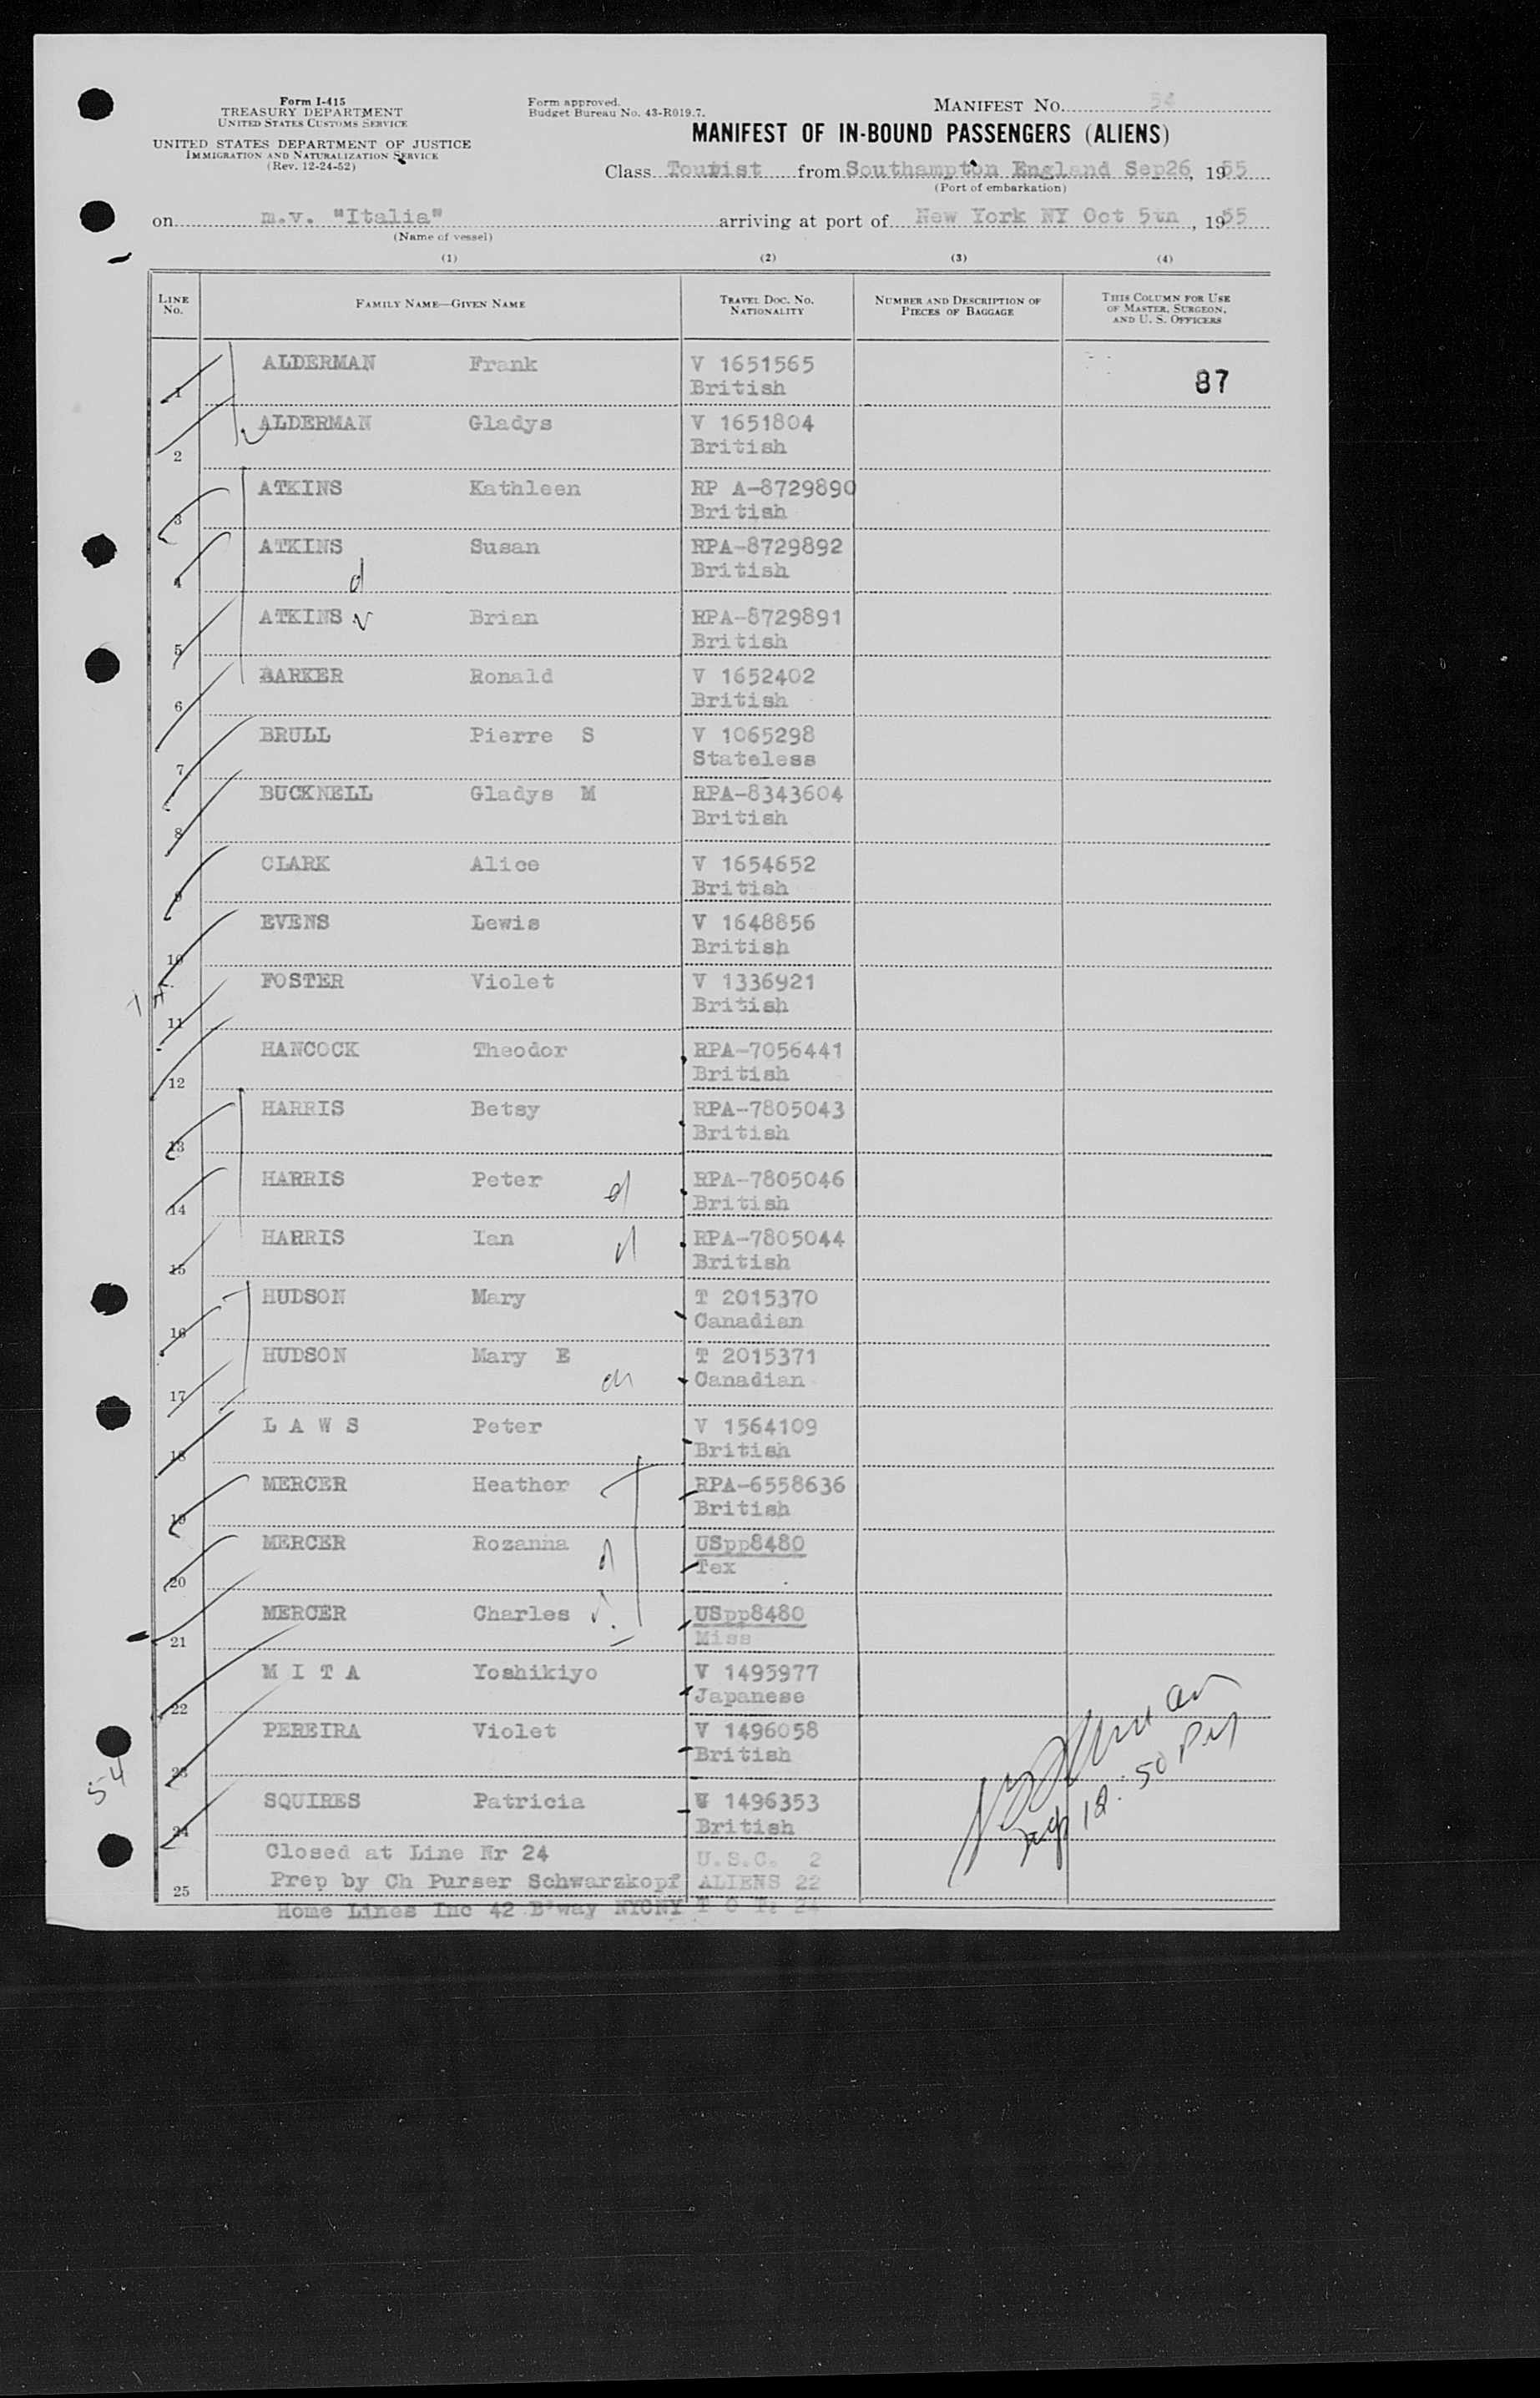 Form I-415
TREASURY DEPARTMENT
UNITED STATES CUSTOMS SERVICE
UNITED STATES DEPARTMENT OF JUSTICE
IMMIGRATION AND NATURALIZATION SERVICE
(Rev. 12-24-52)
Form approved.
Budget Bureau No. 43-R019.7.
MANIFEST No. 54
MANIFEST OF IN-BOUND PASSENGERS (ALIENS)
Class Tourist from Southampton England Sep26, 1955
(Port of embarkation)
on m.v. "Italia" arriving at port of New York NY Oct 5th, 1955
(Name of vessel)
(1) (2) (3) (4)
LINE No. FAMILY NAME—GIVEN NAME TRAVEL DOC. NO. NATIONALITY NUMBER AND DESCRIPTION OF PIECES OF BAGGAGE THIS COLUMN FOR USE OF MASTER, SURGEON, AND U. S. OFFICERS
1 ALDERMAN Frank V 1651565
British 87
2 ALDERMAN Gladys V 1651804
British
3 ATKINS Kathleen RP A-8729890
British
4 ATKINS Susan RPA-8729892
British
d
5 ATKINS Brian RPA-8729891
British
6 BARKER Ronald V 1652402
British
7 BRULL Pierre S V 1065298
Stateless
8 BUCKNELL Gladys M RPA-8343604
British
9 CLARK Alice V 1654652
British
10 EVENS Lewis V 1648856
British
11 FOSTER Violet V 1336921
British
12 HANCOCK Theodor RPA-7056441
British
13 HARRIS Betsy RPA-7805043
British
14 HARRIS Peter d RPA-7805046
British
15 HARRIS Ian d RPA-7805044
British
16 HUDSON Mary T 2015370
Canadian
17 HUDSON Mary E T 2015371
Canadian
18 L A W S Peter V 1564109
British
19 MERCER Heather RPA-6558636
British
20 MERCER Rozanna USpp8480
Tex
21 MERCER Charles USpp8480
Miss
22 M I T A Yoshikiyo V 1495977
Japanese
23 PEREIRA Violet V 1496058
British
24 SQUIRES Patricia V 1496353
British
Closed at Line Nr 24 U.S.C. 2
25 Prep by Ch Purser Schwarzkopf ALIENS 22
Home Lines Inc 42 B'way NYCNY T O T: 24
54
12.50 PM